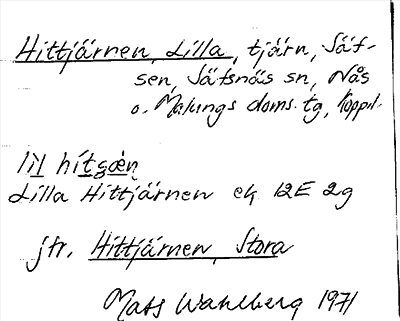 Hittjärnen, Lilla, tjärn, Säf-
sen, Säfsnäs sn, Nås
o. Malungs doms. tg, Koppbl.
lil hítʂæ̀n
Lilla Hittjärnen ek 12E 2g
jfr. Hittjärnen, Stora
Mats Wahlberg 1971